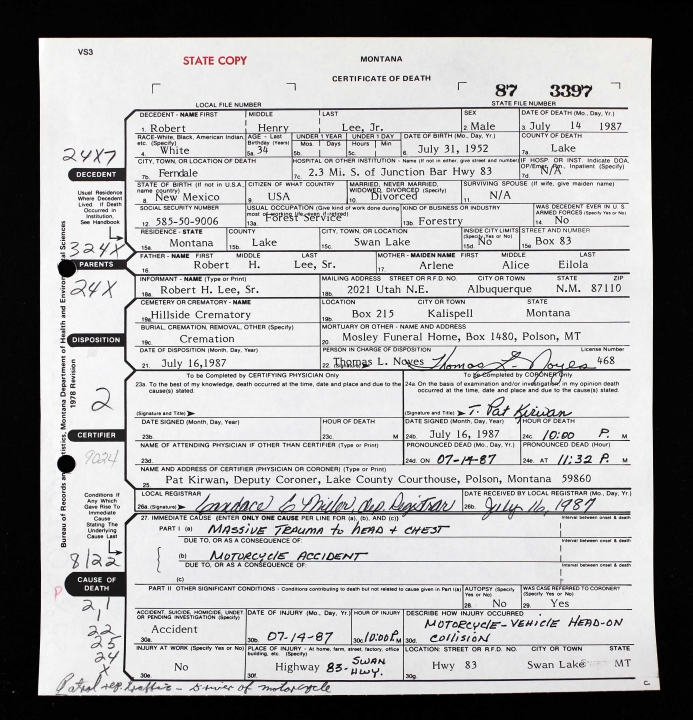 VS3
STATE COPY
MONTANA
CERTIFICATE OF DEATH
87 3397
LOCAL FILE NUMBER STATE FILE NUMBER
DECEDENT - NAME FIRST MIDDLE LAST SEX DATE OF DEATH (Mo., Day, Yr.)
1. Robert Henry Lee, Jr. 2. Male 3. July 14 1987
RACE-White, Black, American Indian, etc. (Specify) AGE - Last Birthday (Years) UNDER 1 YEAR UNDER 1 DAY DATE OF BIRTH (Mo., Day, Yr.) COUNTY OF DEATH
Mos. Days Hours Min
4. White 5a. 34 5b. 5c. 6. July 31, 1952 7a. Lake
24X7
DECEDENT
CITY, TOWN, OR LOCATION OF DEATH HOSPITAL OR OTHER INSTITUTION - Name (If not in either, give street and number) IF HOSP. OR INST. Indicate DOA, OP/Emer. Rm., Inpatient (Specify)
7b. Ferndale 7c. 2.3 Mi. S. of Junction Bar Hwy 83 7d. N/A
Usual Residence Where Decedent Lived. If Death Occurred in Institution, See Handbook
STATE OF BIRTH (If not in U.S.A., name country) CITIZEN OF WHAT COUNTRY MARRIED, NEVER MARRIED, WIDOWED, DIVORCED (Specify) SURVIVING SPOUSE (If wife, give maiden name)
8. New Mexico 9. USA 10. Divorced 11. N/A
SOCIAL SECURITY NUMBER USUAL OCCUPATION (Give kind of work done during most of working life, even if retired) KIND OF BUSINESS OR INDUSTRY WAS DECEDENT EVER IN U.S. ARMED FORCES (Specify Yes or No)
12. 585-50-9006 Forest Service 13b. Forestry 14. No
RESIDENCE - STATE COUNTY CITY, TOWN, OR LOCATION INSIDE CITY LIMITS (Specify Yes or No) STREET AND NUMBER
15a. Montana 15b. Lake Swan Lake 15d. No 15e. Box 83
324X
PARENTS
FATHER - NAME FIRST MIDDLE LAST MOTHER - MAIDEN NAME FIRST MIDDLE LAST
16. Robert H. Lee, Sr. 17. Arlene Alice Eilola
24X
INFORMANT - NAME (Type or Print) MAILING ADDRESS STREET OR R.F.D. NO. CITY OR TOWN STATE ZIP
18a. Robert H. Lee, Sr. 18b. 2021 Utah N.E. Albuquerque N.M. 87110
CEMETERY OR CREMATORY - NAME LOCATION CITY OR TOWN STATE
19a. Hillside Crematory 19b. Box 215 Kalispell Montana
DISPOSITION
BURIAL, CREMATION, REMOVAL, OTHER (Specify) MORTUARY OR OTHER - NAME AND ADDRESS
19c. Cremation 20. Mosley Funeral Home, Box 1480, Polson, MT
DATE OF DISPOSITION (Month, Day, Year) PERSON IN CHARGE OF DISPOSITION License Number
21. July 16,1987 22. (Signature) Thomas L. Noyes Thomas L. Noyes 468
2
To be Completed by CERTIFYING PHYSICIAN Only To be Completed by CORONER Only
23a. To the best of my knowledge, death occurred at the time, date and place and due to the cause(s) stated. 24a. On the basis of examination and/or investigation, in my opinion death occurred at the time, date and place and due to the cause(s) stated.
(Signature and Title) (Signature and Title) T. Pat Kirwan
DATE SIGNED (Month, Day, Year) HOUR OF DEATH DATE SIGNED (Month, Day, Year) HOUR OF DEATH
23b. 23c. M 24b. July 16, 1987 24c. 10:00 P. M
CERTIFIER
NAME OF ATTENDING PHYSICIAN IF OTHER THAN CERTIFIER (Type or Print) PRONOUNCED DEAD (Mo., Day, Yr.) PRONOUNCED DEAD (Hour)
23d. 24d. ON 07-14-87 24e. AT 11:32 P. M
9024
NAME AND ADDRESS OF CERTIFIER (PHYSICIAN OR CORONER) (Type or Print)
25. Pat Kirwan, Deputy Coroner, Lake County Courthouse, Polson, Montana 59860
LOCAL REGISTRAR DATE RECEIVED BY LOCAL REGISTRAR (Mo., Day, Yr.)
26a. (Signature) Candace E Miller, dep. Registrar 26b. July 16, 1987
Conditions if Any Which Gave Rise To Immediate Cause Stating The Underlying Cause Last
27. IMMEDIATE CAUSE (ENTER ONLY ONE CAUSE PER LINE FOR (a), (b), AND (c)) Interval between onset & death
PART I (a) MASSIVE TRAUMA to HEAD & CHEST
DUE TO, OR AS A CONSEQUENCE OF: Interval between onset & death
(b) MOTORCYCLE ACCIDENT
DUE TO, OR AS A CONSEQUENCE OF: Interval between onset & death
(c)
8/22
CAUSE OF DEATH
PART II OTHER SIGNIFICANT CONDITIONS - Conditions contributing to death but not related to cause given in Part I(a) AUTOPSY (Specify Yes or No) WAS CASE REFERRED TO CORONER? (Specify Yes or No)
28. No 29. Yes
P
21
22
25
24
X
ACCIDENT, SUICIDE, HOMICIDE, UNDET. OR PENDING INVESTIGATION (Specify) DATE OF INJURY (Mo., Day, Yr.) HOUR OF INJURY DESCRIBE HOW INJURY OCCURRED
30a. Accident 30b. 07-14-87 30c. 10:00P. M 30d. MOTORCYCLE-VEHICLE HEAD-ON COLLISION
INJURY AT WORK (Specify Yes or No) PLACE OF INJURY - At home, farm, street, factory, office building, etc. (Specify) LOCATION: STREET OR R.F.D. NO. CITY OR TOWN STATE
30e. No 30f. Highway 83-SWAN HWY. 30g. Hwy 83 Swan Lake MT
Patrol rep. traffic - driver of motorcycle
C
Bureau of Records and Statistics, Montana Department of Health and Environmental Sciences
1978 Revision